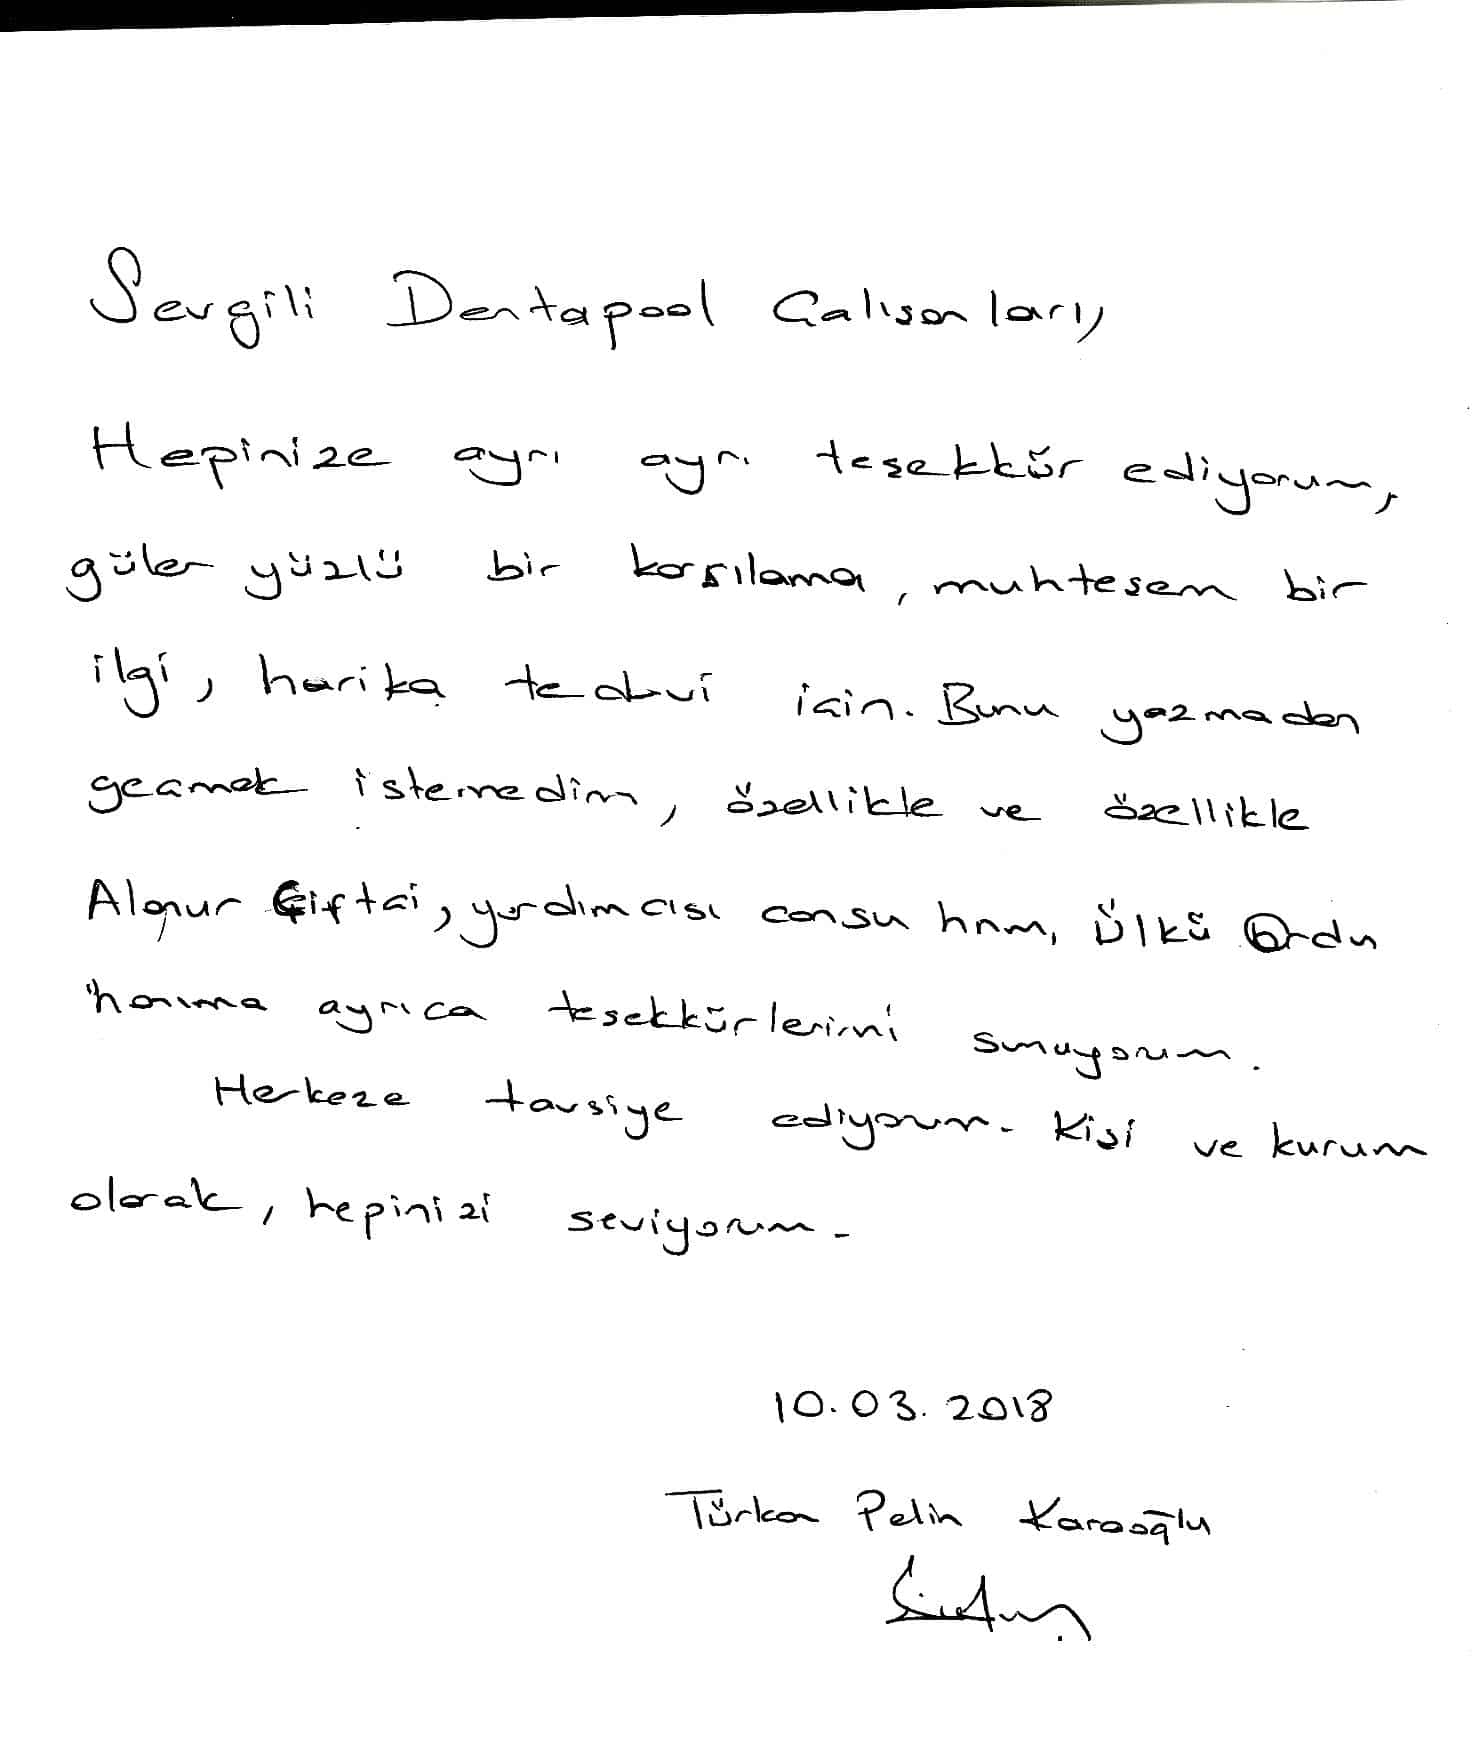 Sevgili Dentapool Çalışanları,
Hepinize ayrı ayrı teşekkür ediyorum,
güler yüzlü bir karşılama, muhteşem bir
ilgi, harika tedavi için. Bunu yazmadan
geçmek istemedim, özellikle ve özellikle
Alpnur Çiftçi, yardımcısı cansu hnm, Ülkü Ordu
hanıma ayrıca teşekkürlerimi sunuyorum.
Herkeze tavsiye ediyorum. Kişi ve kurum
olarak, hepinizi seviyorum.
10.03.2018
Türkan Pelin Karaoğlu